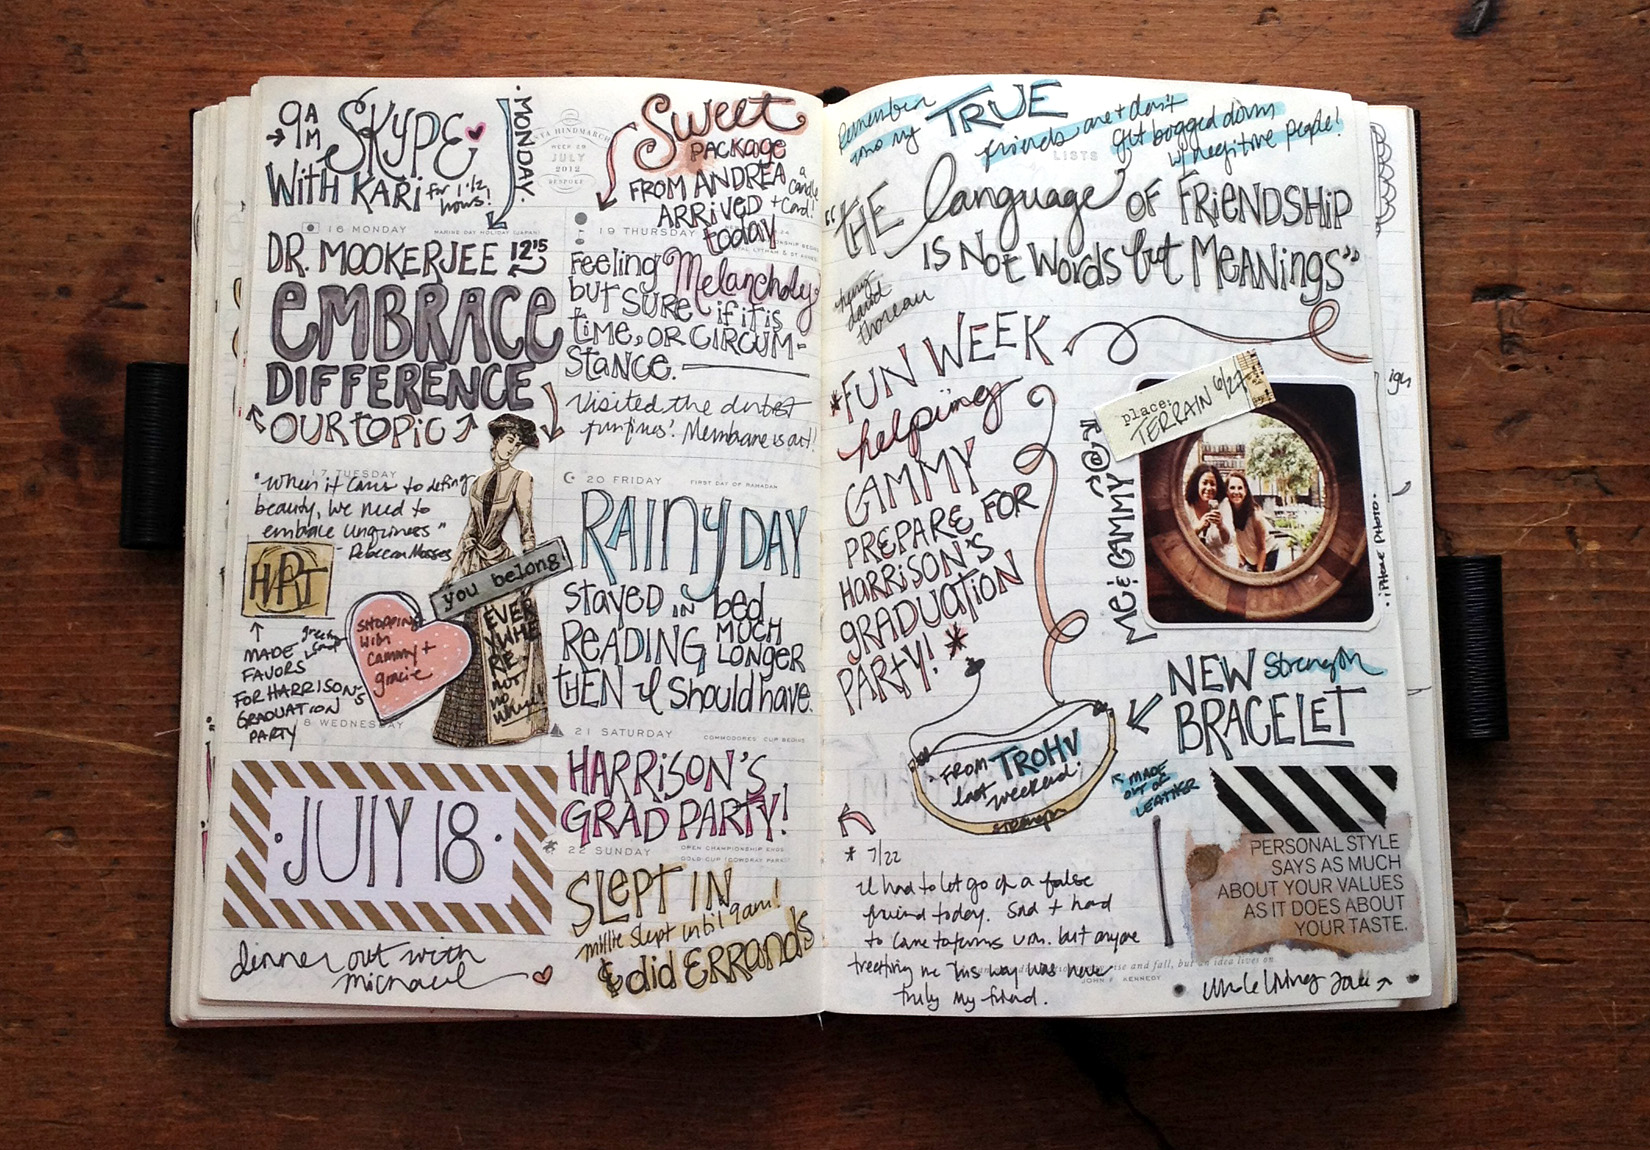 9AM
SKYPE
WITH KARI for 1 1/2 hours!
MONDAY.
16 MONDAY
MARINE DAY HOLIDAY (JAPAN)
DR. MOOKERJEE 12:15
EMBRACE
DIFFERENCE
OUR TOPIC
17 TUESDAY
"When it comes to defining
beauty, we need to
embrace ugliness"
- Rebecca Mosses
ART
MADE
FAVORS
FOR HARRISON'S
GRADUATION
PARTY
SHOPPING
with
Cammy +
gracie
you belong.
EVER
YWHE
RE
not
no
where
8 WEDNESDAY
JULY 18
dinner out with
michael
WEEK 29
JULY
2012
BESPOKE
Sweet
PACKAGE
FROM ANDREA
ARRIVED
today
a candle + card!
19 THURSDAY
Feeling Melancholy
but SURE if it is
time, OR CIRCUM-
Stance.
Visited the dentist
Membrane is out!
20 FRIDAY
FIRST DAY OF RAMADAN
RAINY DAY
Stayed IN bed
READING MUCH LONGER
tHEN I Should have.
21 SATURDAY
COMMODORES' CUP BEGINS
HARRISON'S
GRAD PARTY!
22 SUNDAY
OPEN CHAMPIONSHIP ENDS
GOLD CUP (COWDRAY PARK)
SLEPT IN
millie slept until 9am!
& did ERRANDS
Remember who my TRUE
friends are + don't
get bogged down
w/ negitive people!
LISTS
"THE language OF FRIENDSHIP
IS Not Words but MEANINGS"
henry
david
thoreau
*FUN WEEK
helping
CAMMY
PREPARE FOR
HARRISON'S
GRADUATION
PARTY!*
place:
TERRAIN 6/27
ME & CAMMY @
• iPHONE PHOTO •
NEW Strength
BRACELET
FROM TROHV
last weekend!
strength
MADE
OUT OF
LEATHER
* 7/22
I had to let go of a false
friend today. Sad + hard
to come to terms w/. but anyone
treating me this way was never
truly my friend.
PERSONAL STYLE
SAYS AS MUCH
ABOUT YOUR VALUES
AS IT DOES ABOUT
YOUR TASTE.
rise and fall, but an idea lives on
JOHN F. KENNEDY